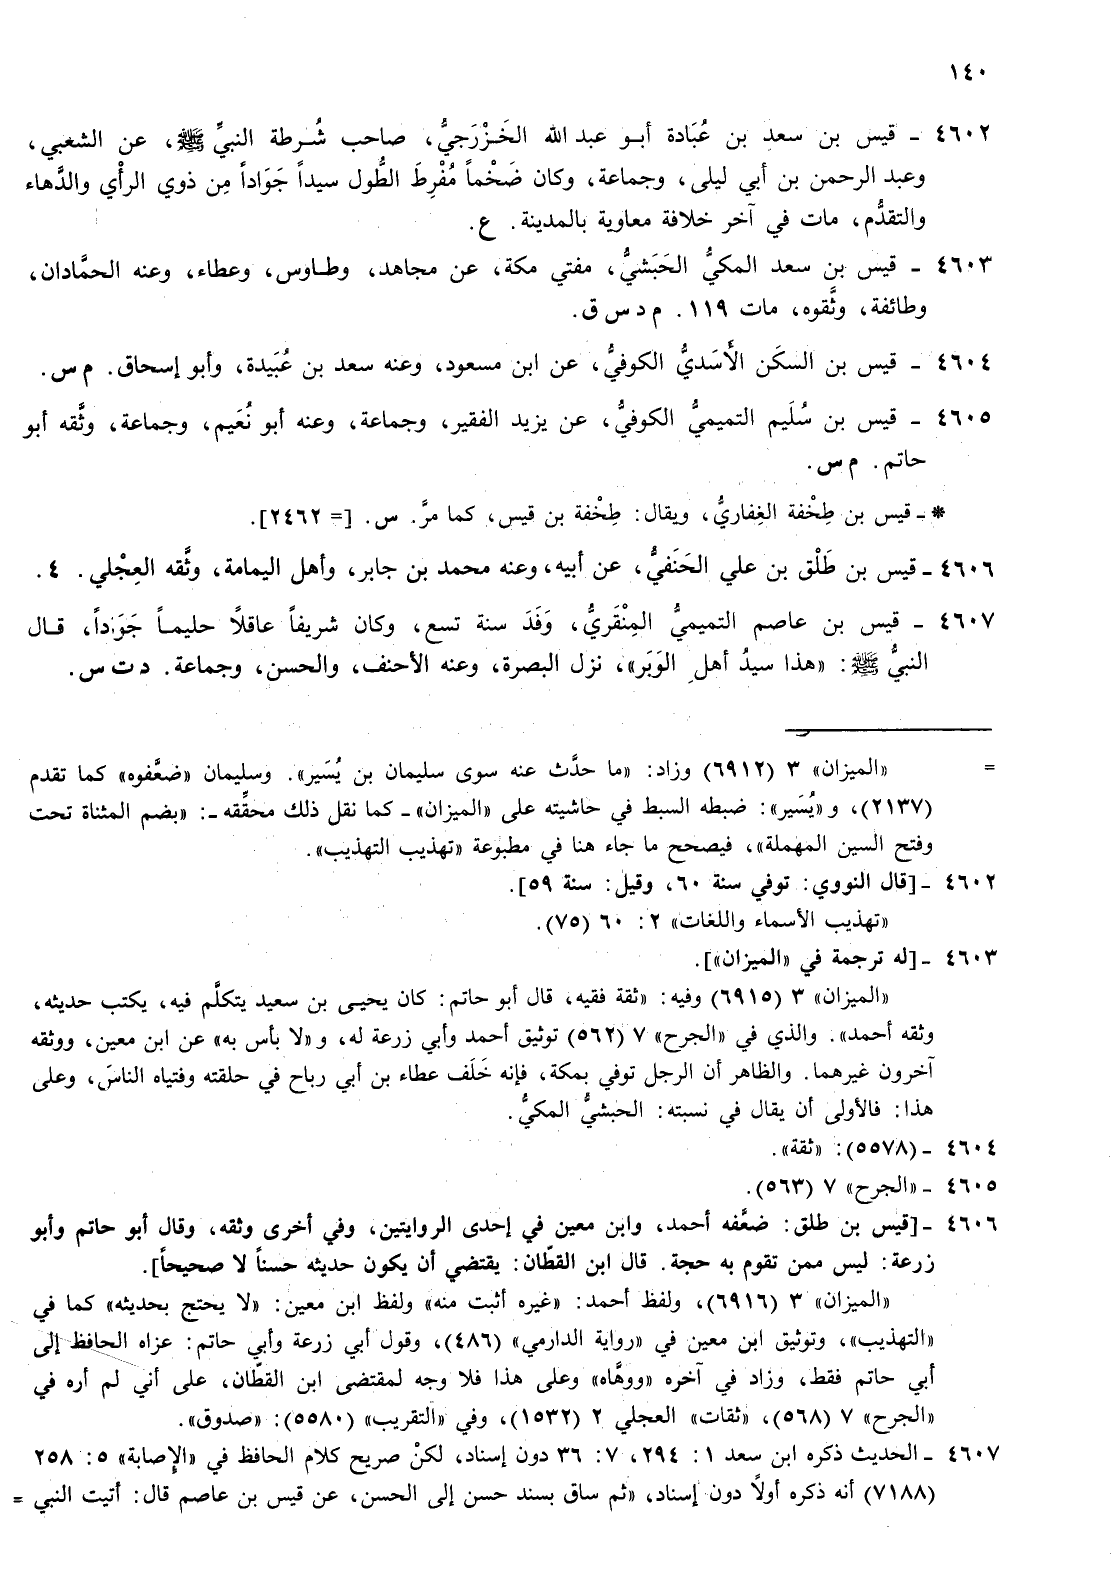 ١٤٠
٤٦٠٢ ـ قيس بن سعد بن عُبَادة أبو عبد الله الخَزْرَجيُّ، صاحب شُرطة النبيِّ ﷺ، عن الشعبي،
وعبد الرحمن بن أبي ليلى، وجماعة، وكان ضَخْماً مُفْرِطَ الطُّول سيداً جَوَاداً مِن ذوي الرأي والدَّهاء
والتقدُّم، مات في آخر خلافة معاوية بالمدينة. ع.
٤٦٠٣ ـ قيس بن سعد المكيُّ الحَبَشيُّ، مفتي مكة، عن مجاهد، وطاوس، وعطاء، وعنه الحمَّادان،
وطائفة، وثَّقوه، مات ١١٩. م د س ق.
٤٦٠٤ ـ قيس بن السكَن الأَسَديُّ الكوفيُّ، عن ابن مسعود، وعنه سعد بن عُبَيدة، وأبو إسحاق. م س.
٤٦٠٥ ـ قيس بن سُلَيم التميميُّ الكوفيُّ، عن يزيد الفقير، وجماعة، وعنه أبو نُعَيم، وجماعة، وثَّقه أبو
حاتم. م س.
* ـ قيس بن طِخْفة الغِفاريُّ، ويقال: طِخْفة بن قيس، كما مرَّ. س. [= ٢٤٦٢].
٤٦٠٦ ـ قيس بن طَلْق بن علي الحَنَفيُّ، عن أبيه، وعنه محمد بن جابر، وأهل اليمامة، وثَّقه العِجْلي. ٤.
٤٦٠٧ ـ قيس بن عاصم التميميُّ المِنْقَريُّ، وَفَدَ سنة تسع، وكان شريفاً عاقلاً حليماً جَوَاداً، قال
النبيُّ ﷺ: «هذا سيدُ أهلِ الوَبَر»، نزل البصرة، وعنه الأحنف، والحسن، وجماعة. د ت س.
= «الميزان» ٣ (٦٩١٢) وزاد: «ما حدَّث عنه سوى سليمان بن يُسَير». وسليمان «ضعَّفوه» كما تقدم
(٢١٣٧)، و«يُسَير»: ضبطه السبط في حاشيته على «الميزان» ـ كما نقل ذلك محقِّقه ـ: «بضم المثناة تحت
وفتح السين المهملة»، فيصحح ما جاء هنا في مطبوعة «تهذيب التهذيب».
٤٦٠٢ ـ [قال النووي: توفي سنة ٦٠، وقيل: سنة ٥٩].
«تهذيب الأسماء واللغات» ٢: ٦٠ (٧٥).
٤٦٠٣ ـ [له ترجمة في «الميزان»].
«الميزان» ٣ (٦٩١٥) وفيه: «ثقة فقيه، قال أبو حاتم: كان يحيى بن سعيد يتكلَّم فيه، يكتب حديثه،
وثقه أحمد». والذي في «الجرح» ٧ (٥٦٢) توثيق أحمد وأبي زرعة له، و«لا بأس به» عن ابن معين، ووثقه
آخرون غيرهما. والظاهر أن الرجل توفي بمكة، فإنه خَلَف عطاء بن أبي رباح في حلقته وفتياه الناسَ، وعلى
هذا: فالأولى أن يقال في نسبته: الحبشيُّ المكيُّ.
٤٦٠٤ ـ (٥٥٧٨): «ثقة».
٤٦٠٥ ـ «الجرح» ٧ (٥٦٣).
٤٦٠٦ ـ [قيس بن طلق: ضعَّفه أحمد، وابن معين في إحدى الروايتين، وفي أخرى وثقه، وقال أبو حاتم وأبو
زرعة: ليس ممن تقوم به حجة. قال ابن القطّان: يقتضي أن يكون حديثه حسناً لا صحيحاً].
«الميزان» ٣ (٦٩١٦)، ولفظ أحمد: «غيره أثبت منه» ولفظ ابن معين: «لا يحتج بحديثه» كما في
«التهذيب»، وتوثيق ابن معين في «رواية الدارمي» (٤٨٦)، وقول أبي زرعة وأبي حاتم: عزاه الحافظ إلى
أبي حاتم فقط، وزاد في آخره «ووهَّاه» وعلى هذا فلا وجه لمقتضى ابن القطّان، على أني لم أره في
«الجرح» ٧ (٥٦٨)، «ثقات» العجلي ٢ (١٥٣٢)، وفي «التقريب» (٥٥٨٠): «صدوق».
٤٦٠٧ ـ الحديث ذكره ابن سعد ١: ٢٩٤، ٧: ٣٦ دون إسناد، لكنْ صريح كلام الحافظ في «الإصابة» ٥: ٢٥٨
(٧١٨٨) أنه ذكره أولاً دون إسناد، «ثم ساق بسند حسن إلى الحسن، عن قيس بن عاصم قال: أتيت النبي =